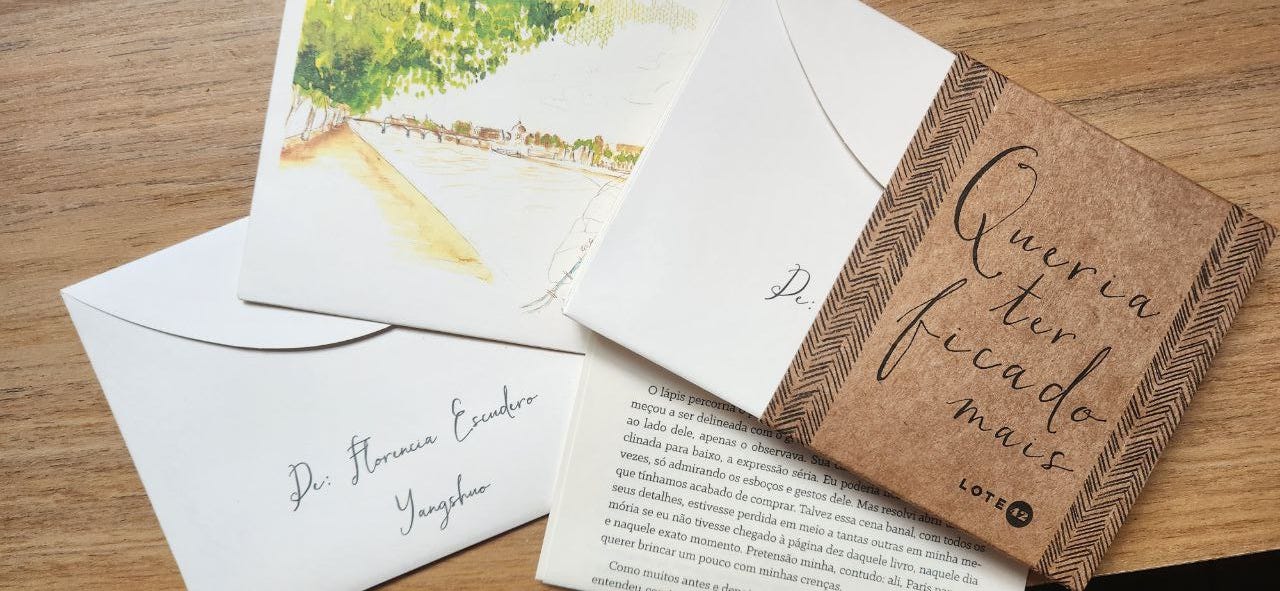 De: Florencia Escudero
Yangshuo
De:
Queria
ter
ficado
mais
LOTE 42
O lápis percorria o
meçou a ser delineada com o
ao lado dele, apenas o observava. Sua
clinada para baixo, a expressão séria. Eu poderia
vezes, só admirando os esboços e gestos dele. Mas resolvi abri
que tínhamos acabado de comprar. Talvez essa cena banal, com todos os
seus detalhes, estivesse perdida em meio a tantas outras em minha me-
mória se eu não tivesse chegado à página dez daquele livro, naquele dia
e naquele exato momento. Pretensão minha, contudo: ali, Paris
querer brincar um pouco com minhas crenças.
Como muitos antes e
entendeu